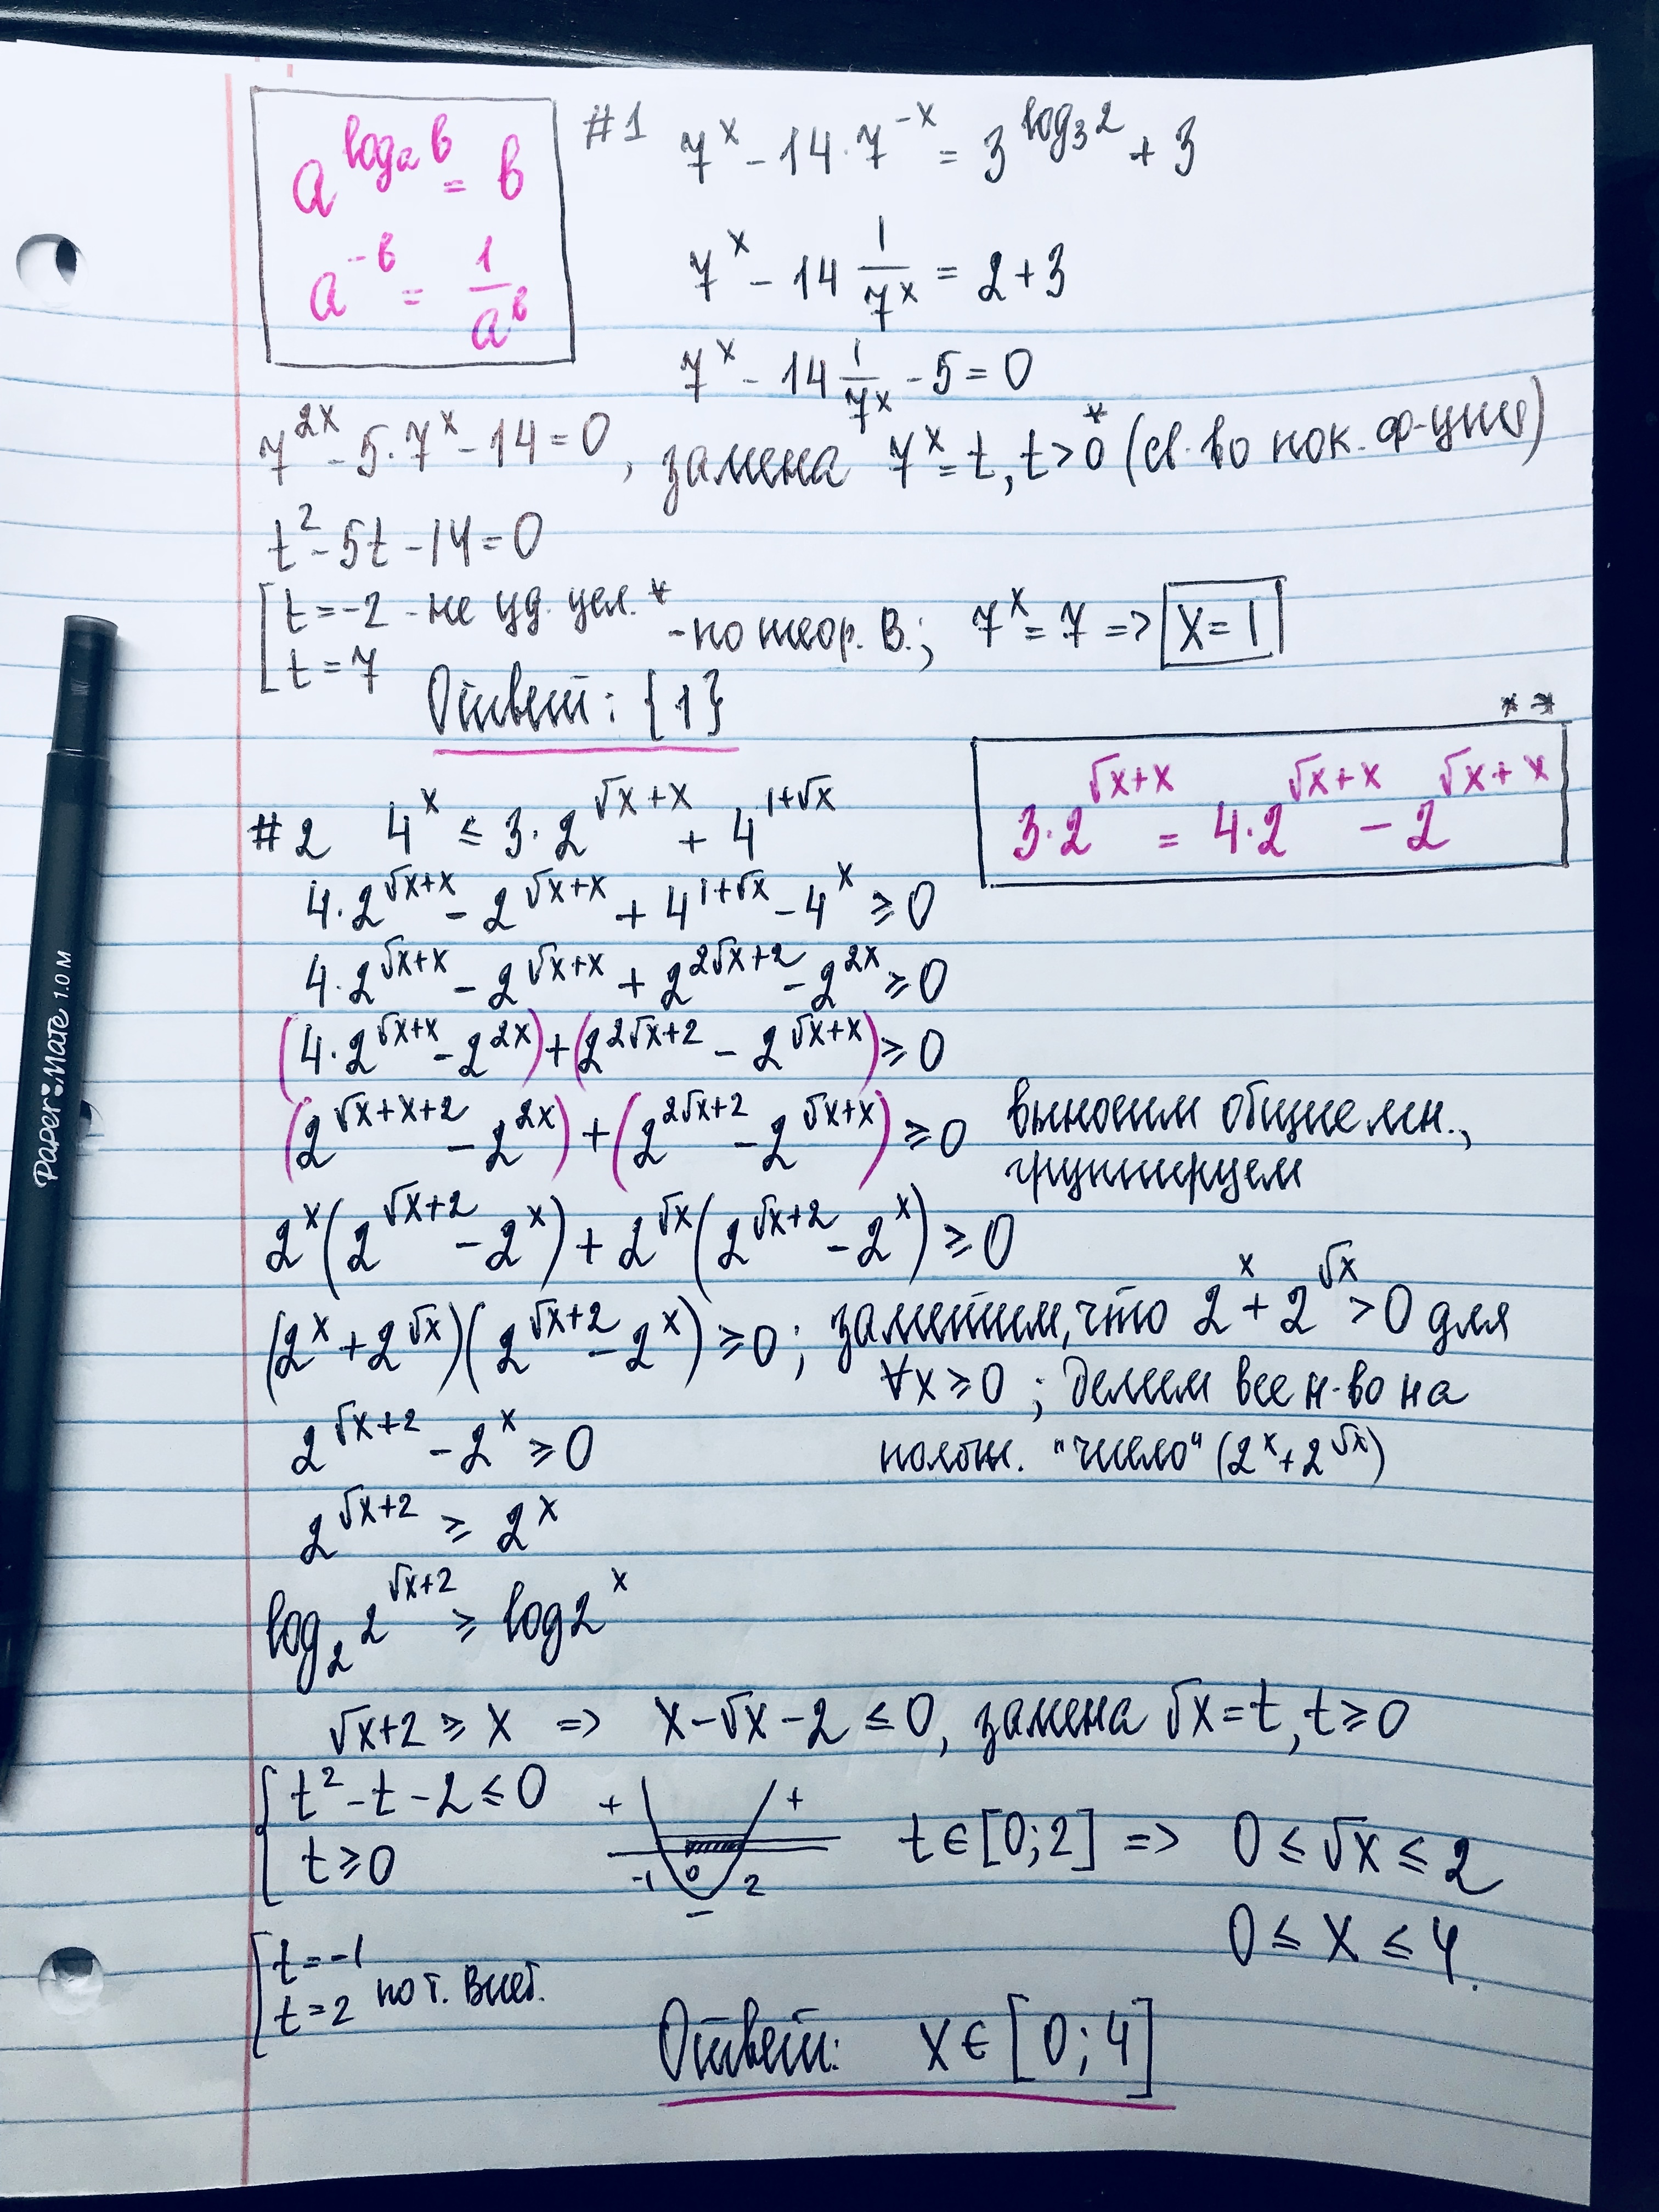 a^{log_a b} = b
a^{-b} = 1/a^b
#1 7^x - 14·7^{-x} = 3^{log_3 2} + 3
7^x - 14 1/7^x = 2+3
7^x - 14 1/7^x - 5 = 0
7^{2x} - 5·7^x - 14 = 0, замена 7^x = t, t > 0* (св-во пок. ф-ции)
t^2 - 5t - 14 = 0
[t = -2 - не уд. усл. *
t = 7 - по теор. В.; 7^x = 7 => x = 1
Ответ: {1}
**
3·2^{√x+x} = 4·2^{√x+x} - 2^{√x+x}
#2 4^x ≤ 3·2^{√x+x} + 4^{1+√x}
4·2^{√x+x} - 2^{√x+x} + 4^{1+√x} - 4^x ≥ 0
4·2^{√x+x} - 2^{√x+x} + 2^{2√x+2} - 2^{2x} ≥ 0
(4·2^{√x+x} - 2^{2x}) + (2^{2√x+2} - 2^{√x+x}) ≥ 0
(2^{√x+x+2} - 2^{2x}) + (2^{2√x+2} - 2^{√x+x}) ≥ 0 выносим общие мн.,
группируем
2^x(2^{√x+2} - 2^x) + 2^{√x}(2^{√x+2} - 2^x) ≥ 0
(2^x + 2^{√x})(2^{√x+2} - 2^x) ≥ 0; заметим, что 2^x + 2^{√x} > 0 для
∀x ≥ 0; делим все н-во на
2^{√x+2} - 2^x ≥ 0
полож. "число" (2^x + 2^{√x})
2^{√x+2} ≥ 2^x
log_2 2^{√x+2} ≥ log 2^x
√x+2 ≥ x => x - √x - 2 ≤ 0, замена √x = t, t ≥ 0
{t^2 - t - 2 ≤ 0
t ≥ 0
+ +
-1 0 2
-
t ∈ [0; 2] => 0 ≤ √x ≤ 2
0 ≤ x ≤ 4.
[t = -1
t = 2 по т. Виет.
Ответ: x ∈ [0; 4]
Paper Mate 1.0 M